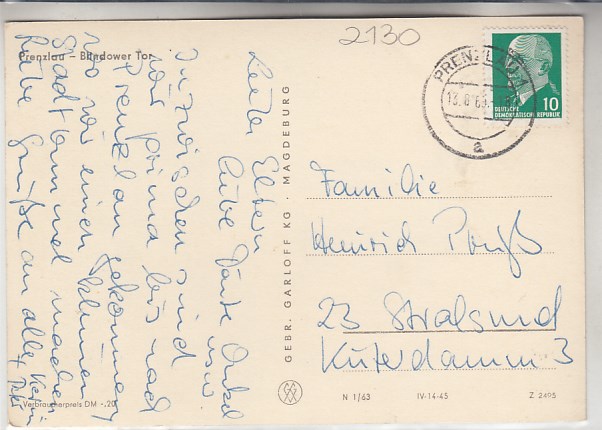 2130
Prenzlau – Blindower Tor
Liebe Eltern
Liebe Tante Onkel
usw.
Inzwischen sind
wir prima bis nach
Prenzlau gekommen
wo wir einen kleinen
Stadtbummel machen
Liebe Grüße an alle
Verbraucherpreis DM -,20
GEBR. GARLOFF KG · MAGDEBURG
PRENZLAU
13.8.63
a
10
DEUTSCHE
DEMOKRATISCHE REPUBLIK
Familie
Heinrich
23 Stralsund
Küterdamm 3
N 1/63 IV-14-45 Z 2495